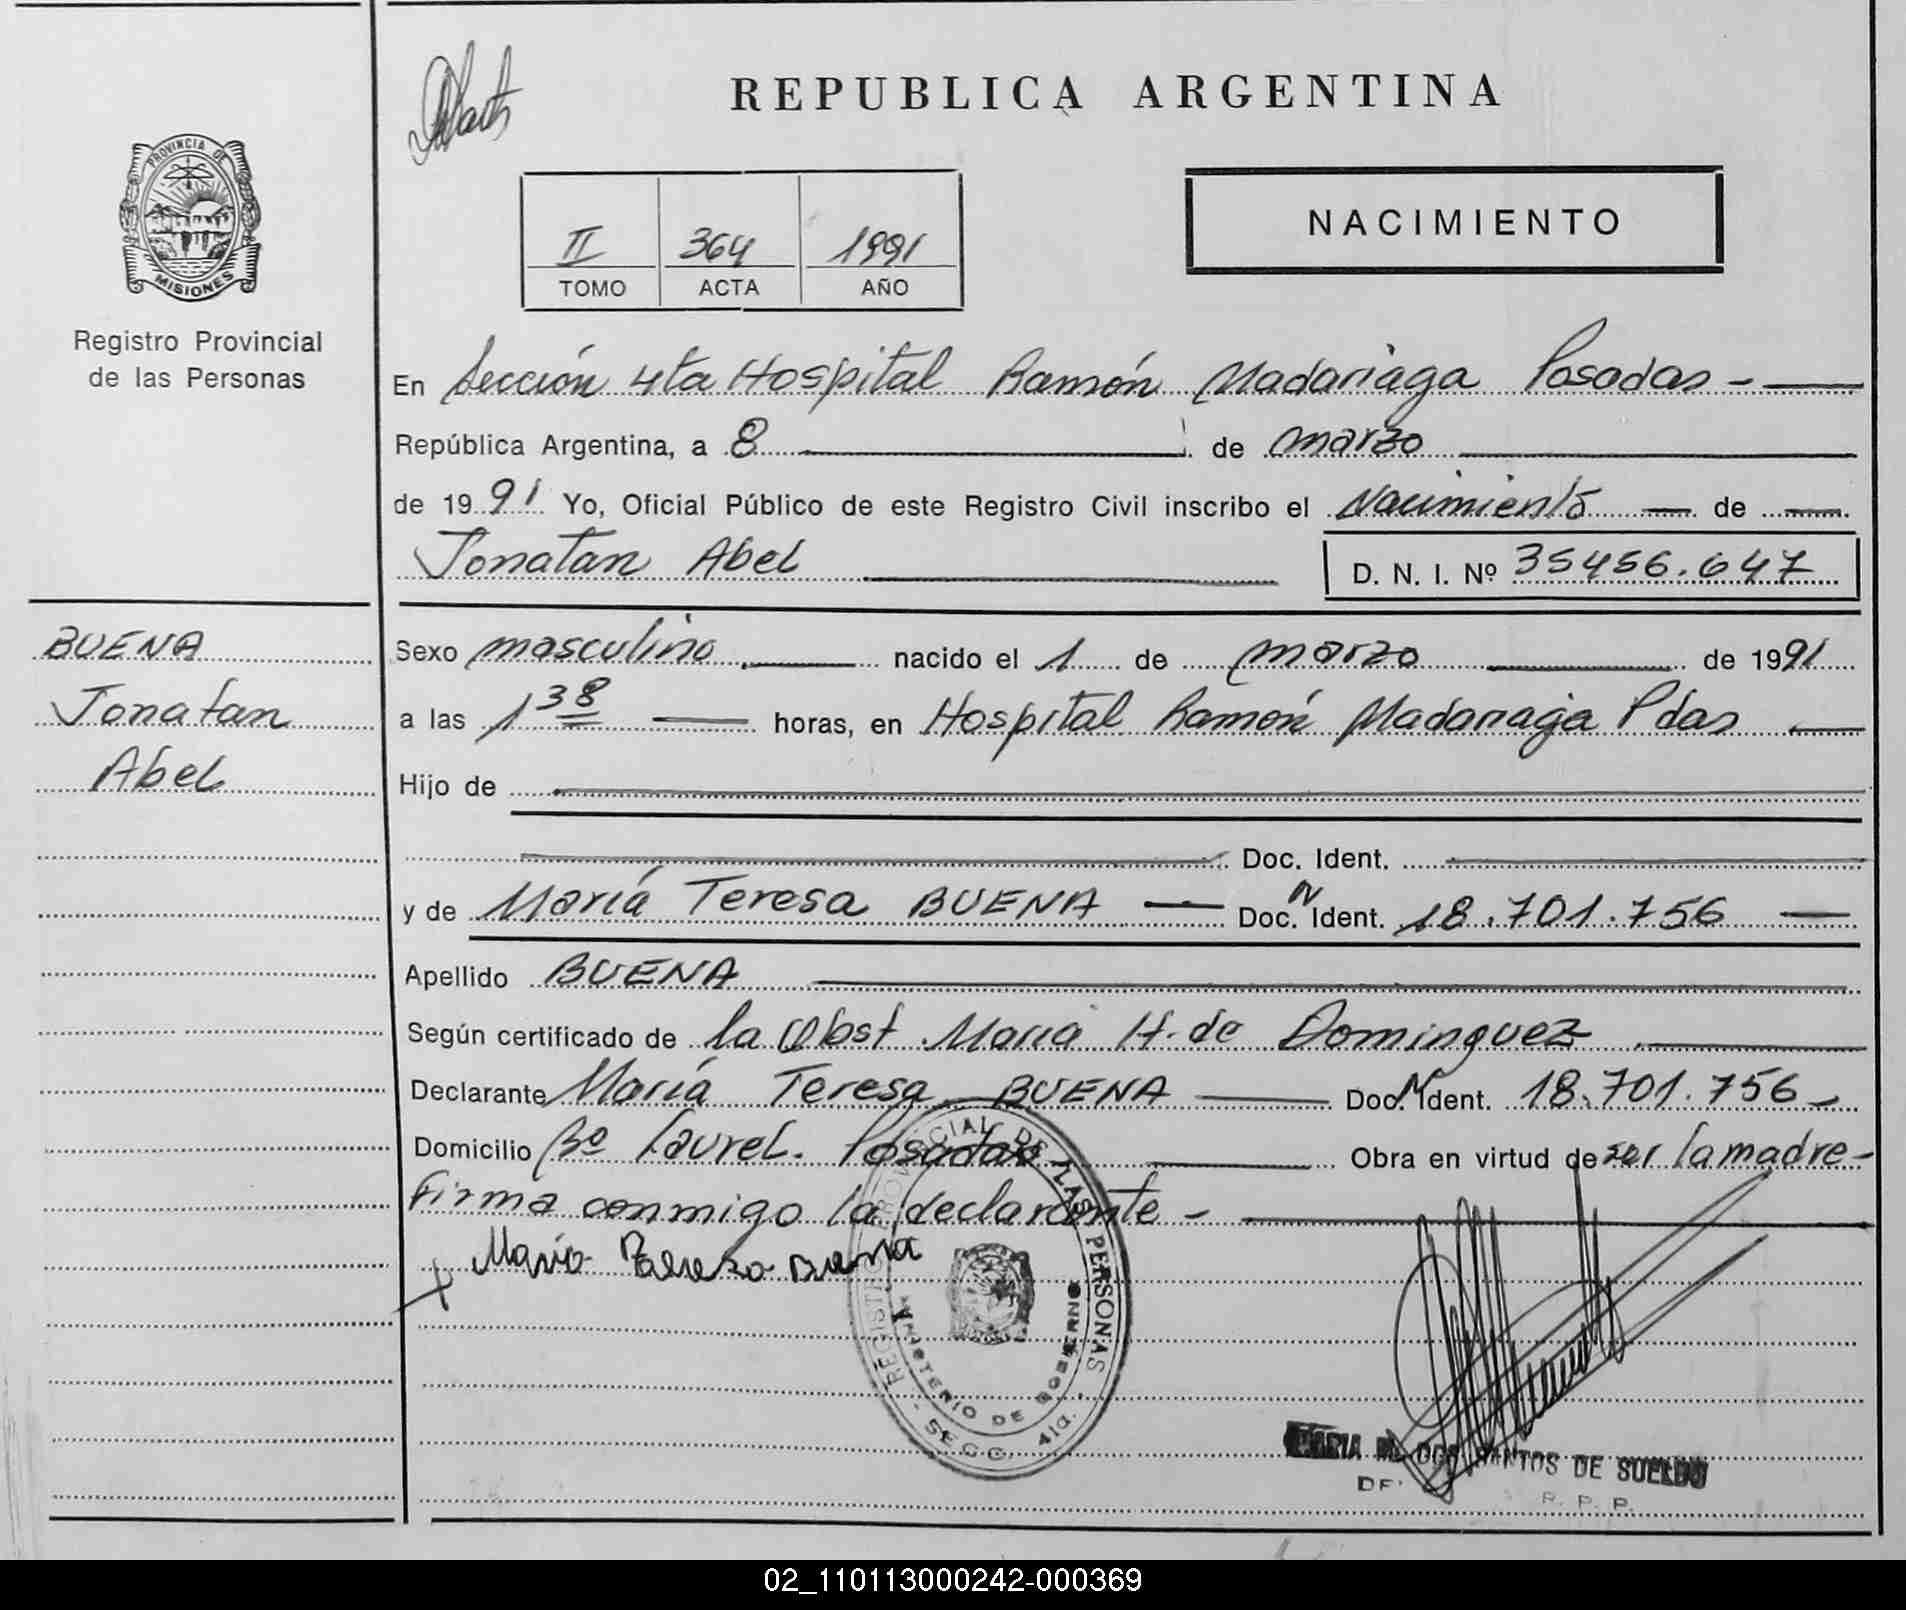 REPUBLICA ARGENTINA
PROVINCIA DE MISIONES
Registro Provincial
de las Personas
II 364 1991
TOMO ACTA AÑO
NACIMIENTO
En Sección 4ta Hospital Ramón Madariaga Posadas -
República Argentina, a 8 de marzo
de 1991 Yo, Oficial Público de este Registro Civil inscribo el Nacimiento de
Jonatan Abel D. N. I. Nº 35456.647
BUENA
Jonatan
Abel
Sexo masculino nacido el 1 de marzo de 1991
a las 1 38 horas, en Hospital Ramón Madariaga Pdas
Hijo de
Doc. Ident.
y de María Teresa BUENA Doc. N Ident. 18.701.756
Apellido BUENA
Según certificado de la Obst María H. de Dominguez
Declarante María Teresa BUENA Doc. N Ident. 18.701.756
Domicilio Bº Laurel. Posadas Obra en virtud de ser la madre -
firma conmigo la declarante -
María Tereza Buena
REGISTRO PROVINCIAL DE LAS PERSONAS
MINISTERIO DE GOBIERNO
- SECC. 4ta. -
MARIA DOS SANTOS DE SUELDO
R. P. P.
02_110113000242-000369